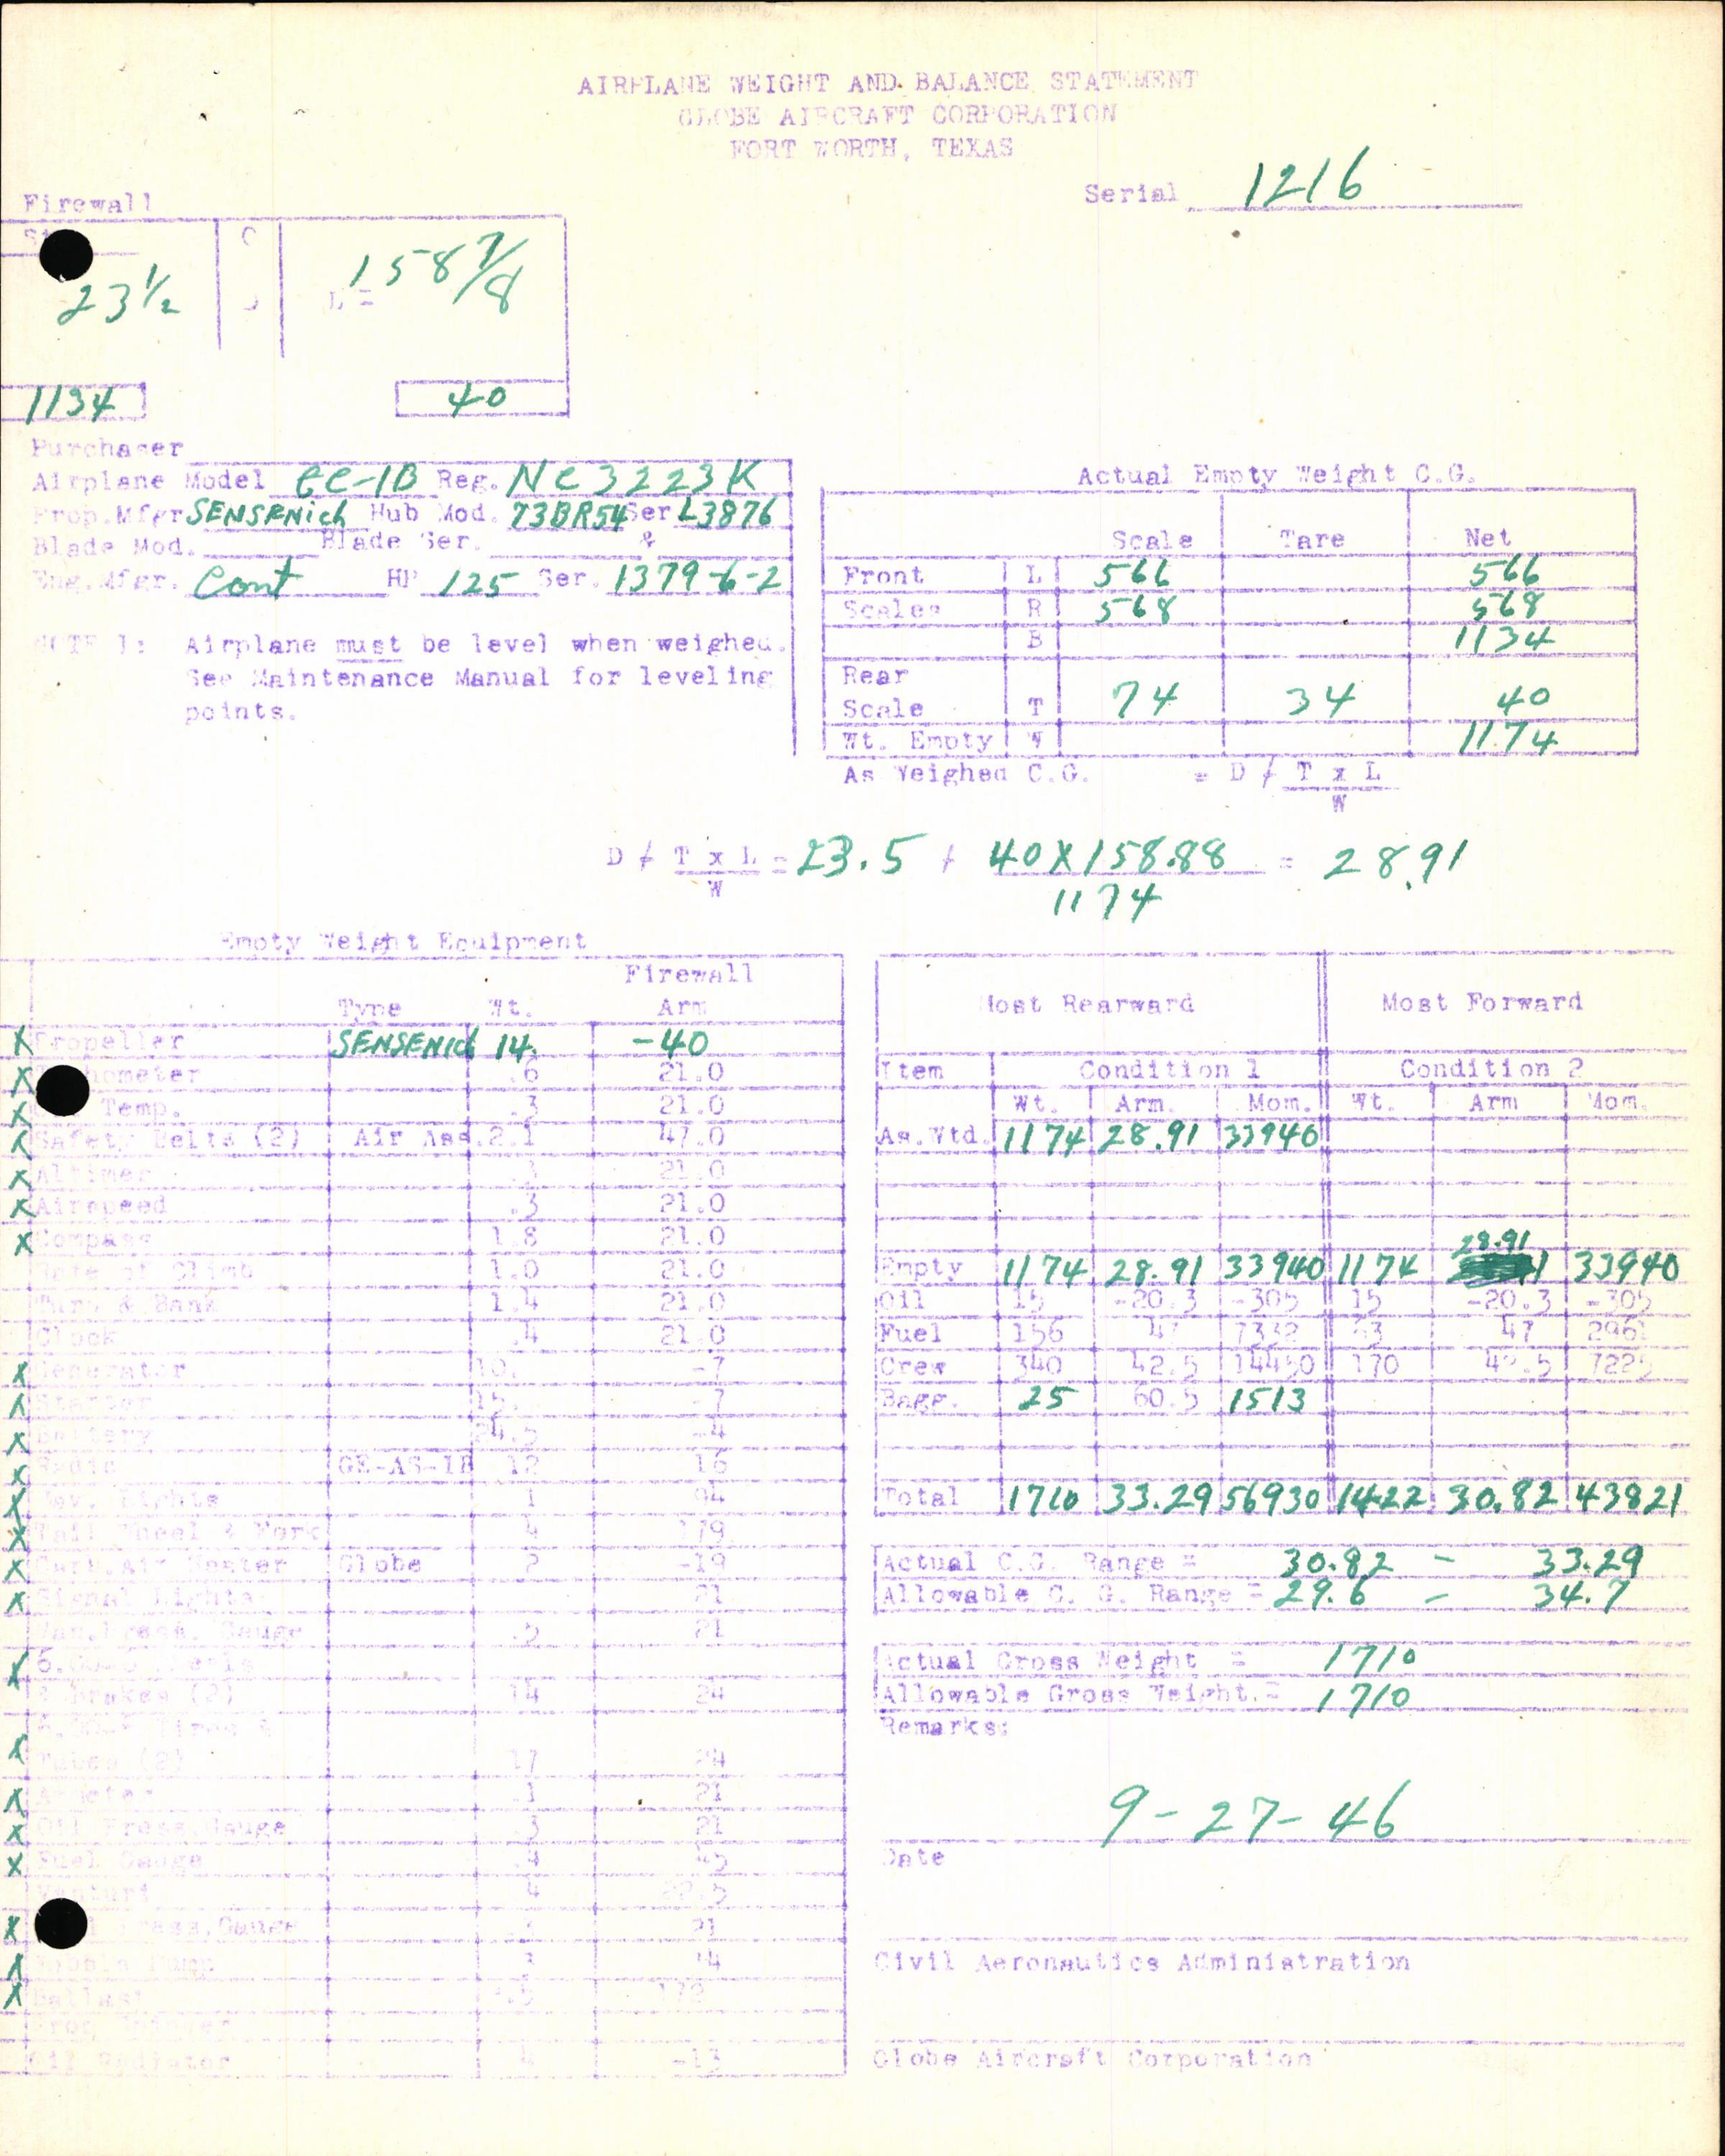 AIRPLANE WEIGHT AND BALANCE STATEMENT
GLOBE AIRCRAFT CORPORATION
FORT WORTH, TEXAS
Serial 1216
Firewall
23 1/2
L = 158 7/8
1134
40
Purchaser
Airplane Model GC-1B Reg. NC3223K
Prop.Mfgr SENSENich Hub Mod. 73BR54 Ser L3876
Blade Mod. Blade Ser. &
Eng.Mfgr. Cont HP 125 Ser. 1379-6-2
NOTE 1: Airplane must be level when weighed.
See Maintenance Manual for leveling
points.
Actual Empty Weight C.G.
Scale Tare Net
Front L 566 566
Scales R 568 568
B 1134
Rear
Scale T 74 34 40
Wt. Empty W 1174
As Weighed C.G. = D / T x L
W
D / T x L = 23.5 / 40X158.88 = 28.91
W 1174
Empty Weight Equipment
Firewall
Type Wt. Arm
X Propeller SENSENich 14. -40
X .6 21.0
X Temp. .3 21.0
X Safety Belts (2) Air Ass. 2.1 47.0
X Altimer 21.0
X Airspeed .3 21.0
X Compass 1.8 21.0
Rate of Climb 1.0 21.0
Turn & Bank 1.4 21.0
Clock .4 21.0
X Generator 10. -7
X Starter 15. -7
X Battery 24.5 -4
X Radio GE-AS-1B 12 16
X Nav. Lights 1 94
X Tail Wheel & Fork 4 179
X Carb.Air Heater Globe 2 -19
X Signal Lights 21
Man.Press. Gauge .5 21
X
& Brakes (2) 14 24
X Tubes (2) 17 24
X 21
X Oil Press.Gauge .3 21
X Fuel Gauge .4 45
Venturi .4
X Press.Gauge 21
X Wobble Pump 14
X Ballast
Oil Radiator 4 -13
Most Rearward Most Forward
Item Condition 1 Condition 2
Wt. Arm. Mom. Wt. Arm Mom.
As.Wtd. 1174 28.91 33940
28.91
Empty 1174 28.91 33940 1174 33940
Oil 15 -20.3 -305 15 -20.3 -305
Fuel 156 47 7332 63 47 2961
Crew 340 42.5 14450 170 42.5 7225
Bagg. 25 60.5 1513
Total 1710 33.29 56930 1422 30.82 43821
Actual C.G. Range = 30.82 - 33.29
Allowable C. G. Range = 29.6 - 34.7
Actual Gross Weight = 1710
Allowable Gross Weight.= 1710
Remarks:
9-27-46
Date
Civil Aeronautics Administration
Globe Aircraft Corporation